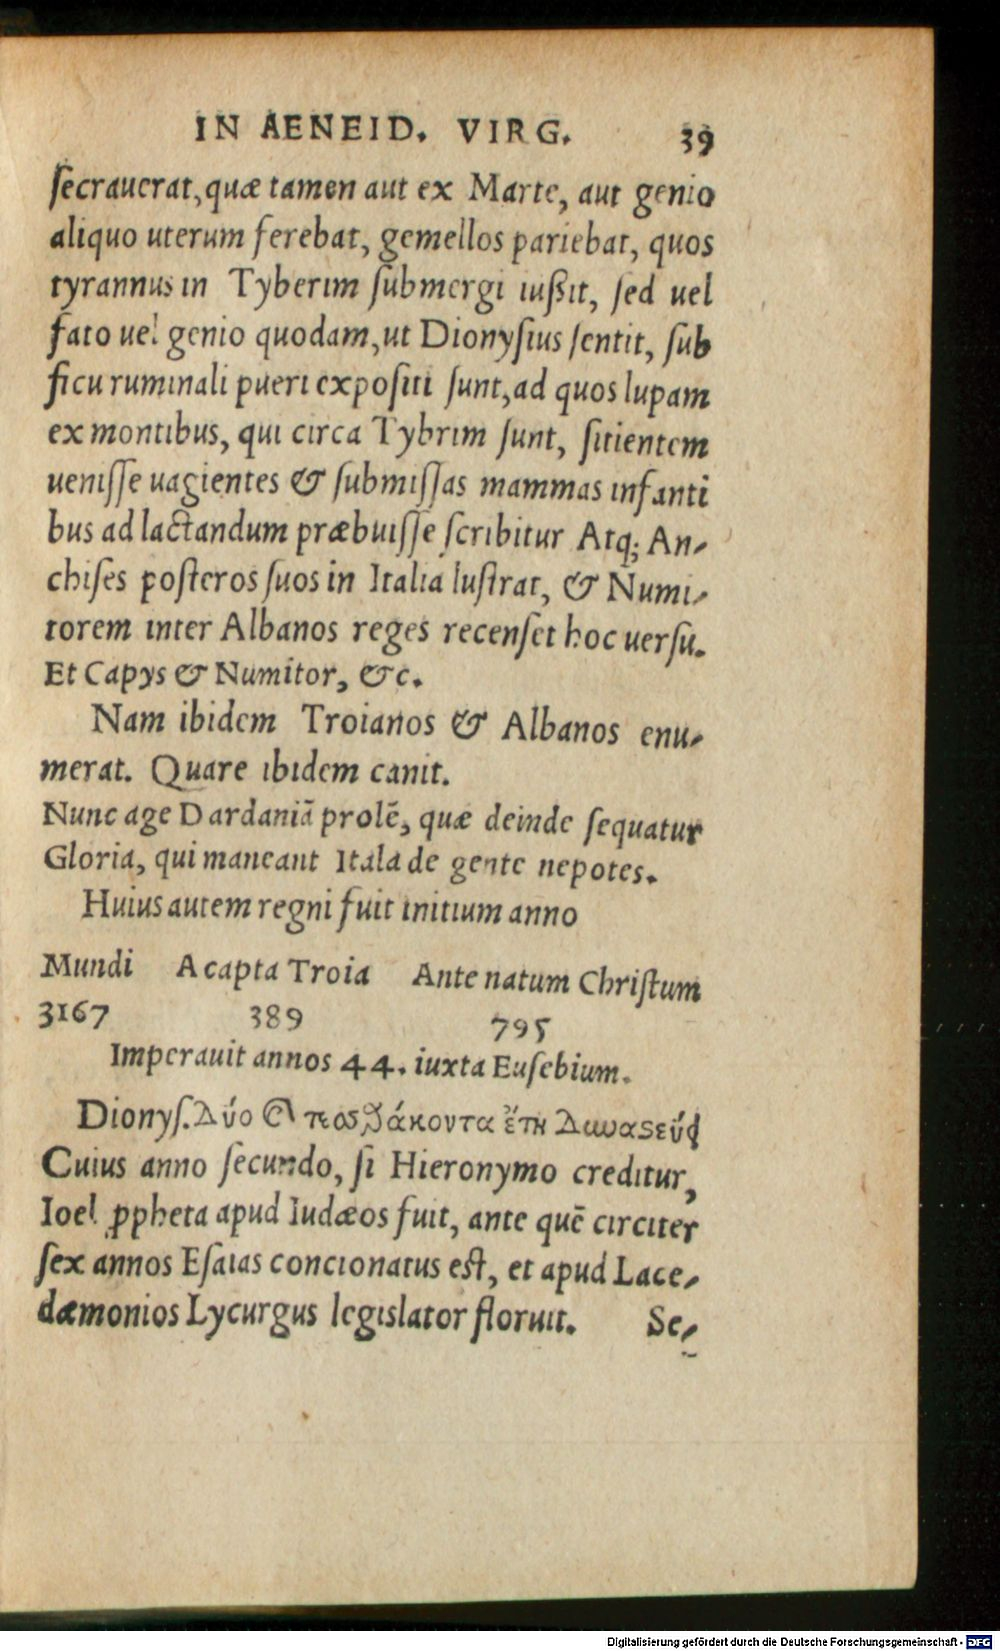 IN AENEID. VIRG. 39
ſecrauerat, quæ tamen aut ex Marte, aut genio
aliquo uterum ferebat, gemellos pariebat, quos
tyrannus in Tyberim ſubmergi iuſsit, ſed uel
fato uel genio quodam, ut Dionyſius ſentit, ſub
ficu ruminali pueri expoſiti ſunt, ad quos lupam
ex montibus, qui circa Tybrim ſunt, ſitientem
ueniſſe uagientes & ſubmiſſas mammas infanti
bus ad lactandum præbuiſſe ſcribitur Atq; An-
chiſes poſteros ſuos in Italia luſtrat, & Numi-
torem inter Albanos reges recenſet hoc uerſu.
Et Capys & Numitor, &c.
Nam ibidem Troianos & Albanos enu-
merat. Quare ibidem canit.
Nunc age Dardaniā prolē, quæ deinde ſequatur
Gloria, qui maneant Itala de gente nepotes.
Huius autem regni fuit initium anno
Mundi A capta Troia Ante natum Chriſtum
3167 389 795
Imperauit annos 44. iuxta Euſebium.
Dionyſ. Δύο ϗ
Cuius anno ſecundo, ſi Hieronymo creditur,
Ioel ꝓpheta apud Iudæos fuit, ante quē circiter
ſex annos Eſaias concionatus eſt, et apud Lace-
dæmonios Lycurgus legislator floruit. Se-
Digitalisierung gefördert durch die Deutsche Forschungsgemeinschaft - DFG